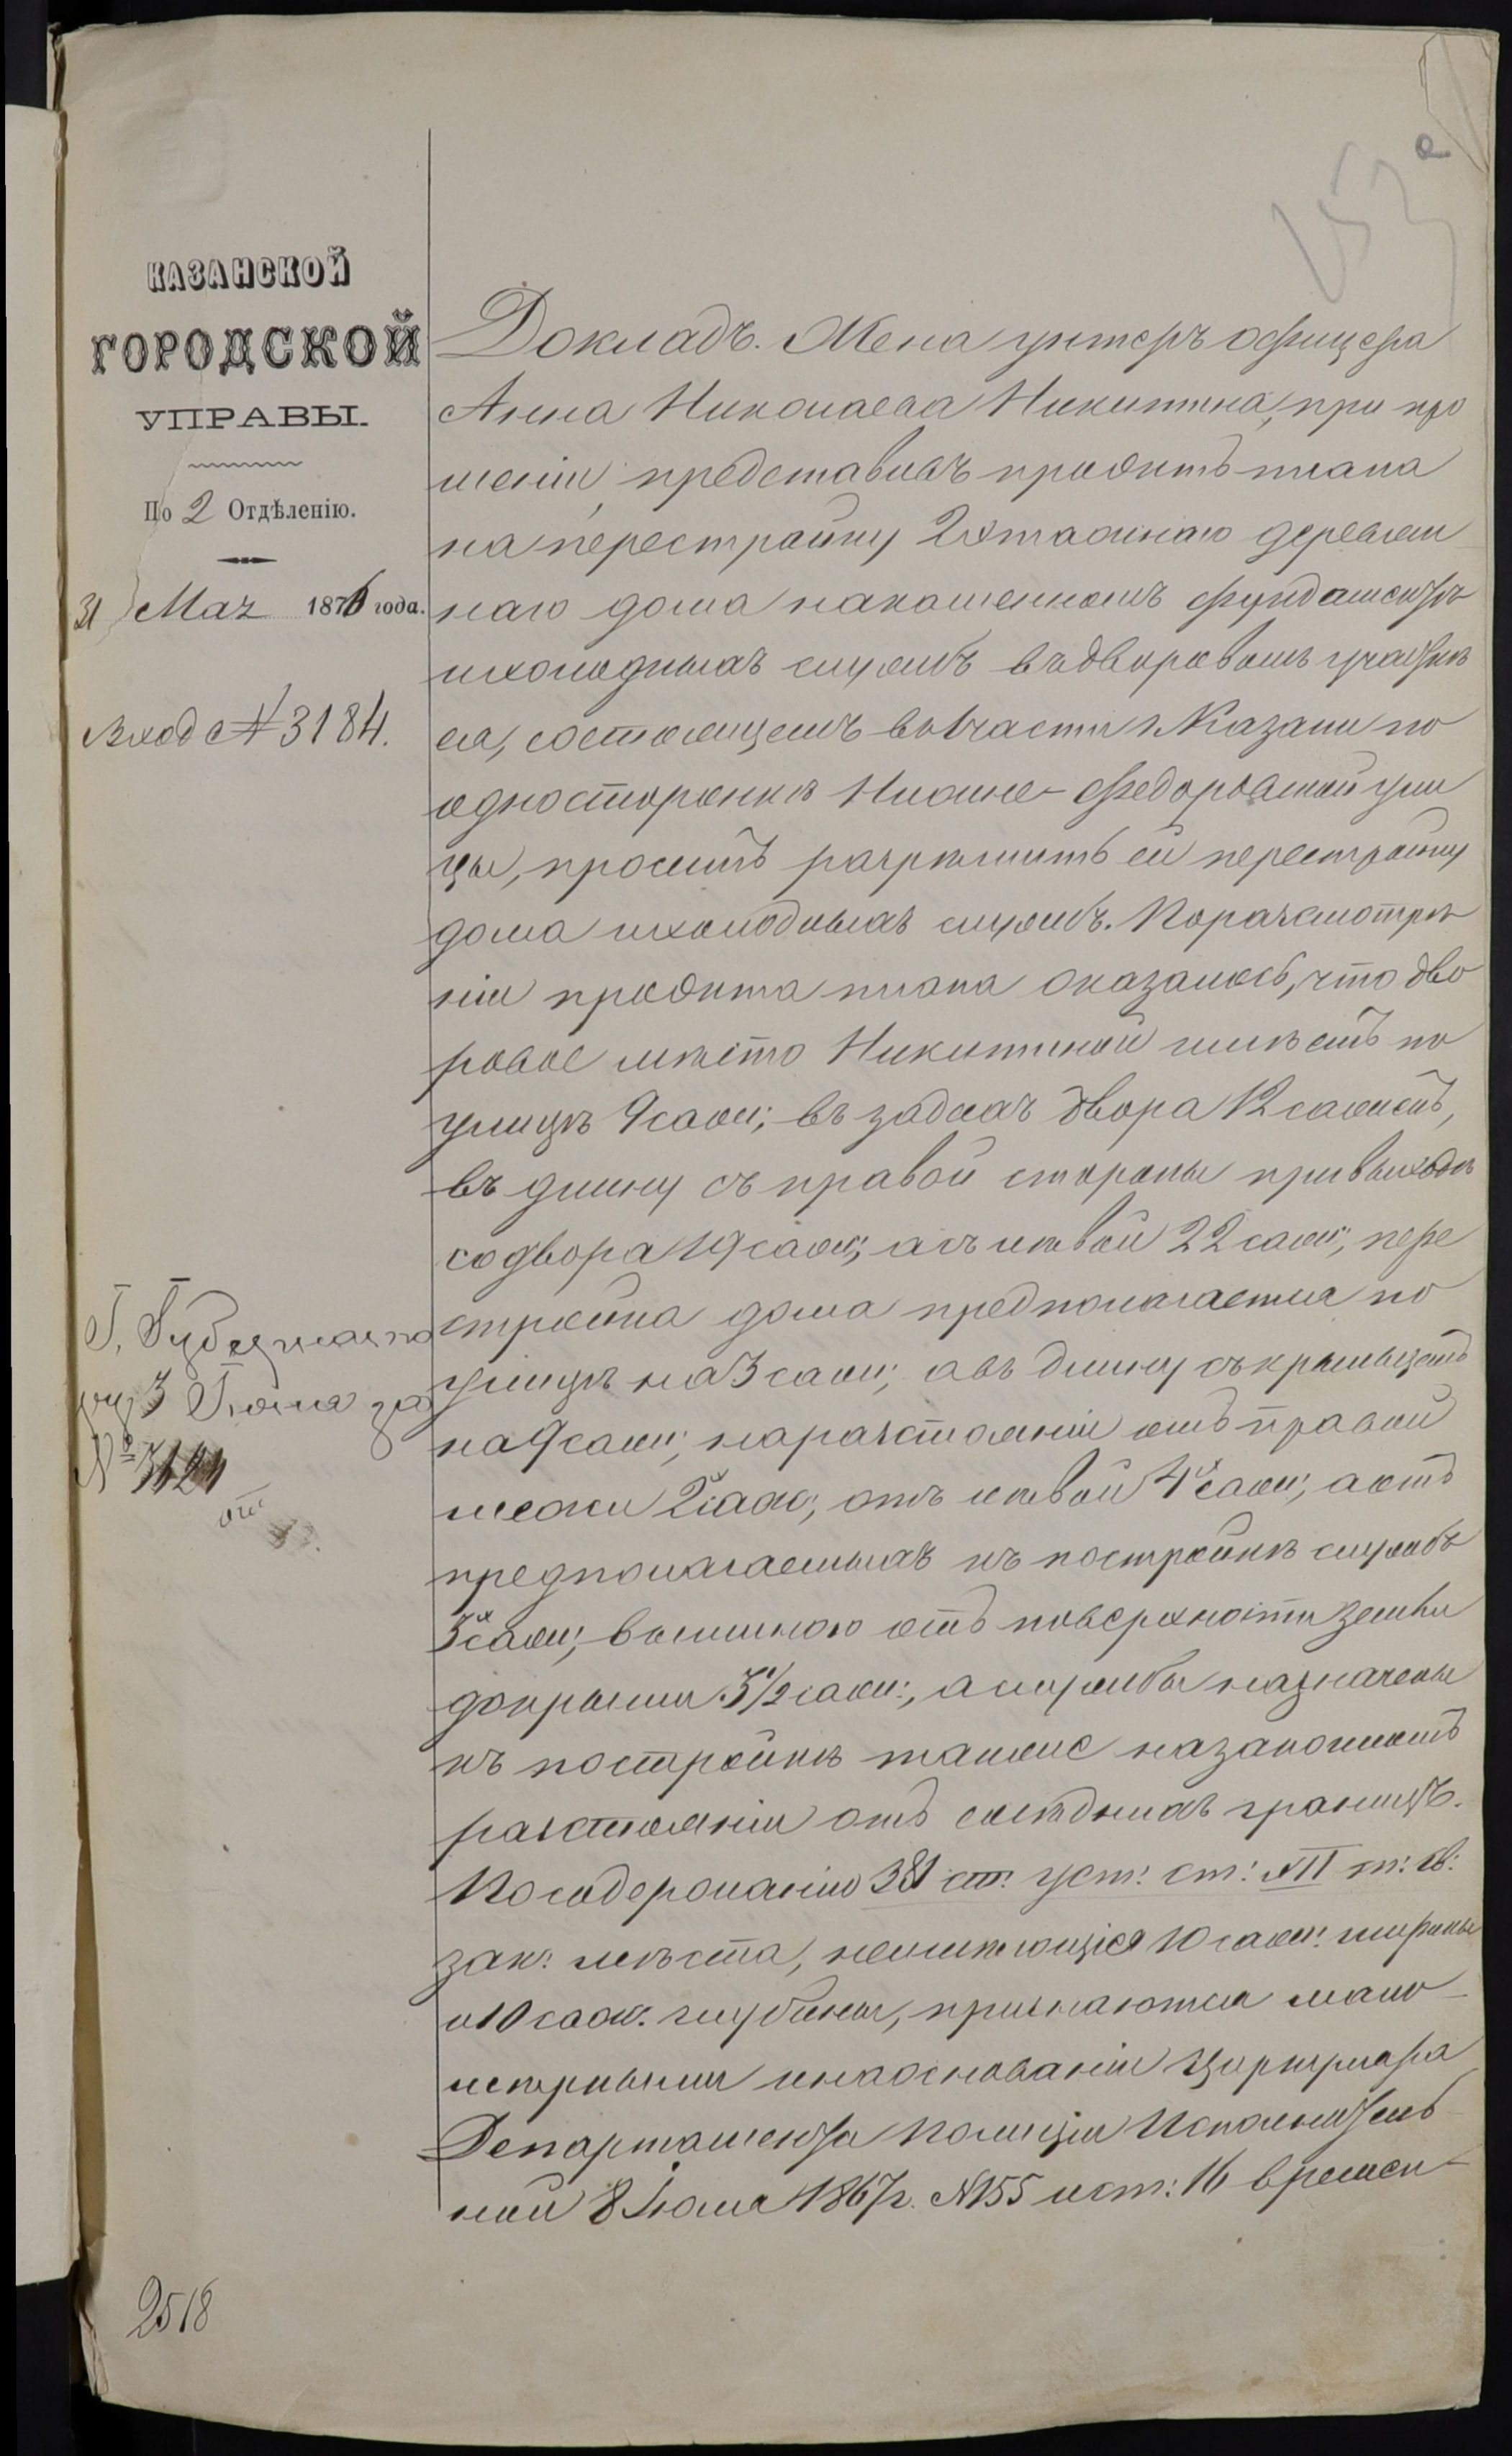 КАЗАНСКОЙ
ГОРОДСКОЙ
УПРАВЫ.
По 2 Отдѣленію.
31 Мая 1876 года.
Вход № 3184.
Г. Губ
3 Іюня за
№ 3124
2518
Докладъ. Жена унтеръ офицера
Анна Николаева Никитина, при про
шеніи представивъ проэктъ плана
на перестройку 2хэтажнаго деревян
наго дома на каменномъ фундаментѣ
и холодныхъ службъ въ дворовомъ участкѣ
ея, состоящемъ во 1 части г. Казани по
одной сторонкѣ Нижне-Федоровской ули
цы, проситъ разрѣшить ей перестройку
дома и холодныхъ службъ. По разсмотрѣ
ніи проэкта плана оказалось, что дво
ровое мѣсто Никитиной имѣетъ по
улицѣ 9 саж; въ задахъ двора 12 сажень,
въ длину съ правой стороны при выходѣ
со двора 19 саж; а съ лѣвой 22 саж; пере
стройка дома предполагается по
улицѣ на 3 саж; а въ длину съ крыльцомъ
на 9 саж; на разстояніи отъ правой
межи 2х саж; отъ лѣвой 4х саж; а отъ
предполагаемыхъ къ постройкѣ службъ
3х саж; вышиною отъ поверхности земли
до крыши 3 1/2 саж:, а службы назначены
къ постройкѣ также на законномъ
разстояніи отъ сосѣднихъ границъ.
По содержанію 381 ст. уст: ст: XII т: св:
зак: мѣста, неимѣющія 10 саж: ширины
и 10 саж. глубины, признаются мало
мѣрными и на основаніи Циркуляра
Департамента Полиціи Исполнитель
ной 8 Іюля 1867 г. № 155 и ст: 16 времен-